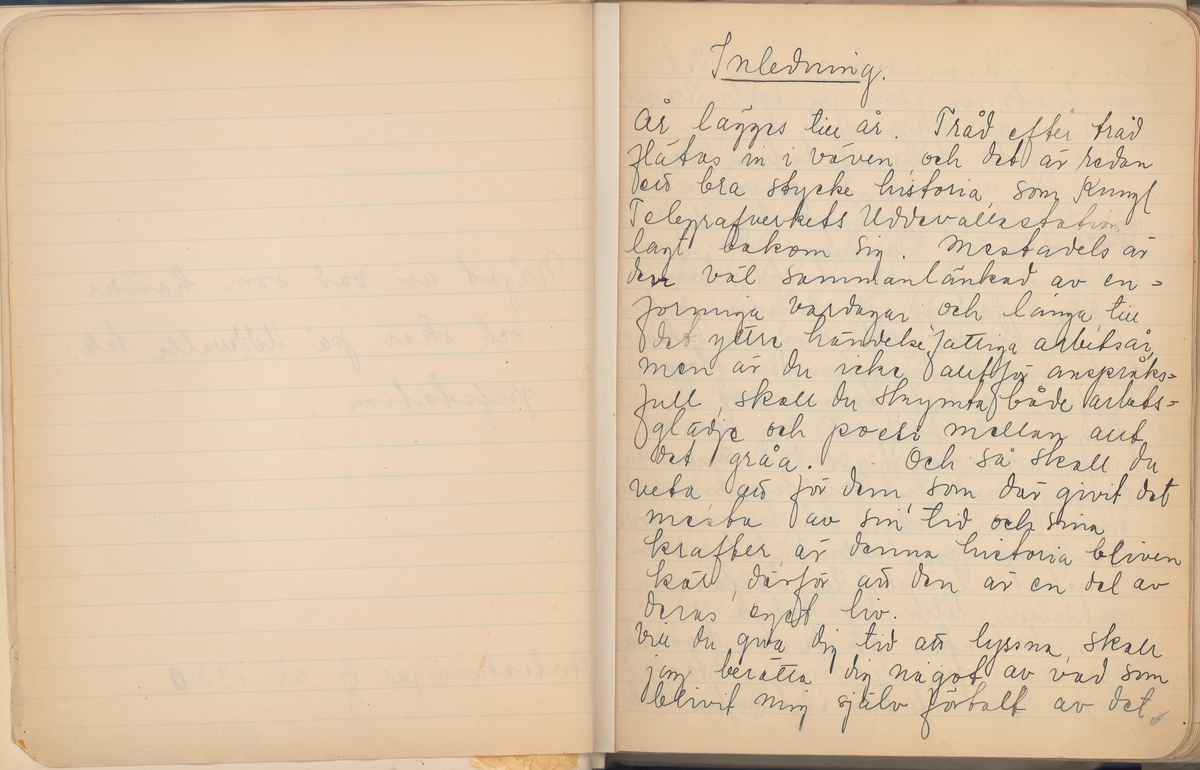 Inledning.
År lägges till år. Tråd efter tråd
flätas in i väven, och det är redan
ett bra stycke historia, som Kungl
Telegrafverkets Uddevallastation
lagt bakom sig. Mestadels är
den väl sammanlänkad av en=
formiga vardagar och långa, till
det yttre händelsefattiga arbetsår,
men är du icke alltför anspråks=
full, skall du skymta både arbets=
glädje och poesi mellan allt
det gråa. Och så skall du
veta att för dem, som där givit det
mesta av sin tid och sina
krafter, är denna historia bliven
kär, därför att den är en del av
deras eget liv.
Vill du giva dig tid att lyssna, skall
jag berätta dig något av vad som
blivit mig själv förtalt av det